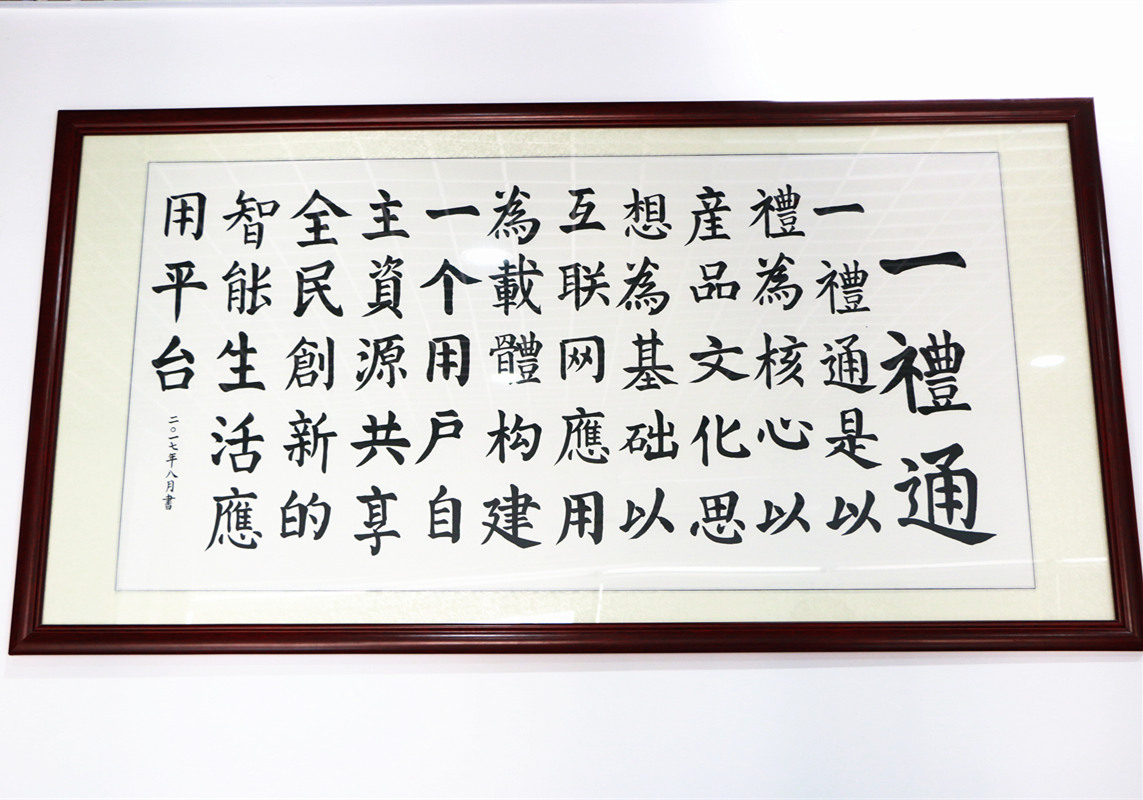 一禮通
一禮通是以
禮為核心以
産品文化思
想為基础以
互联网應用
為載體构建
一个用户自
主資源共享
全民創新的
智能生活應
用平台
二〇一七年八月書